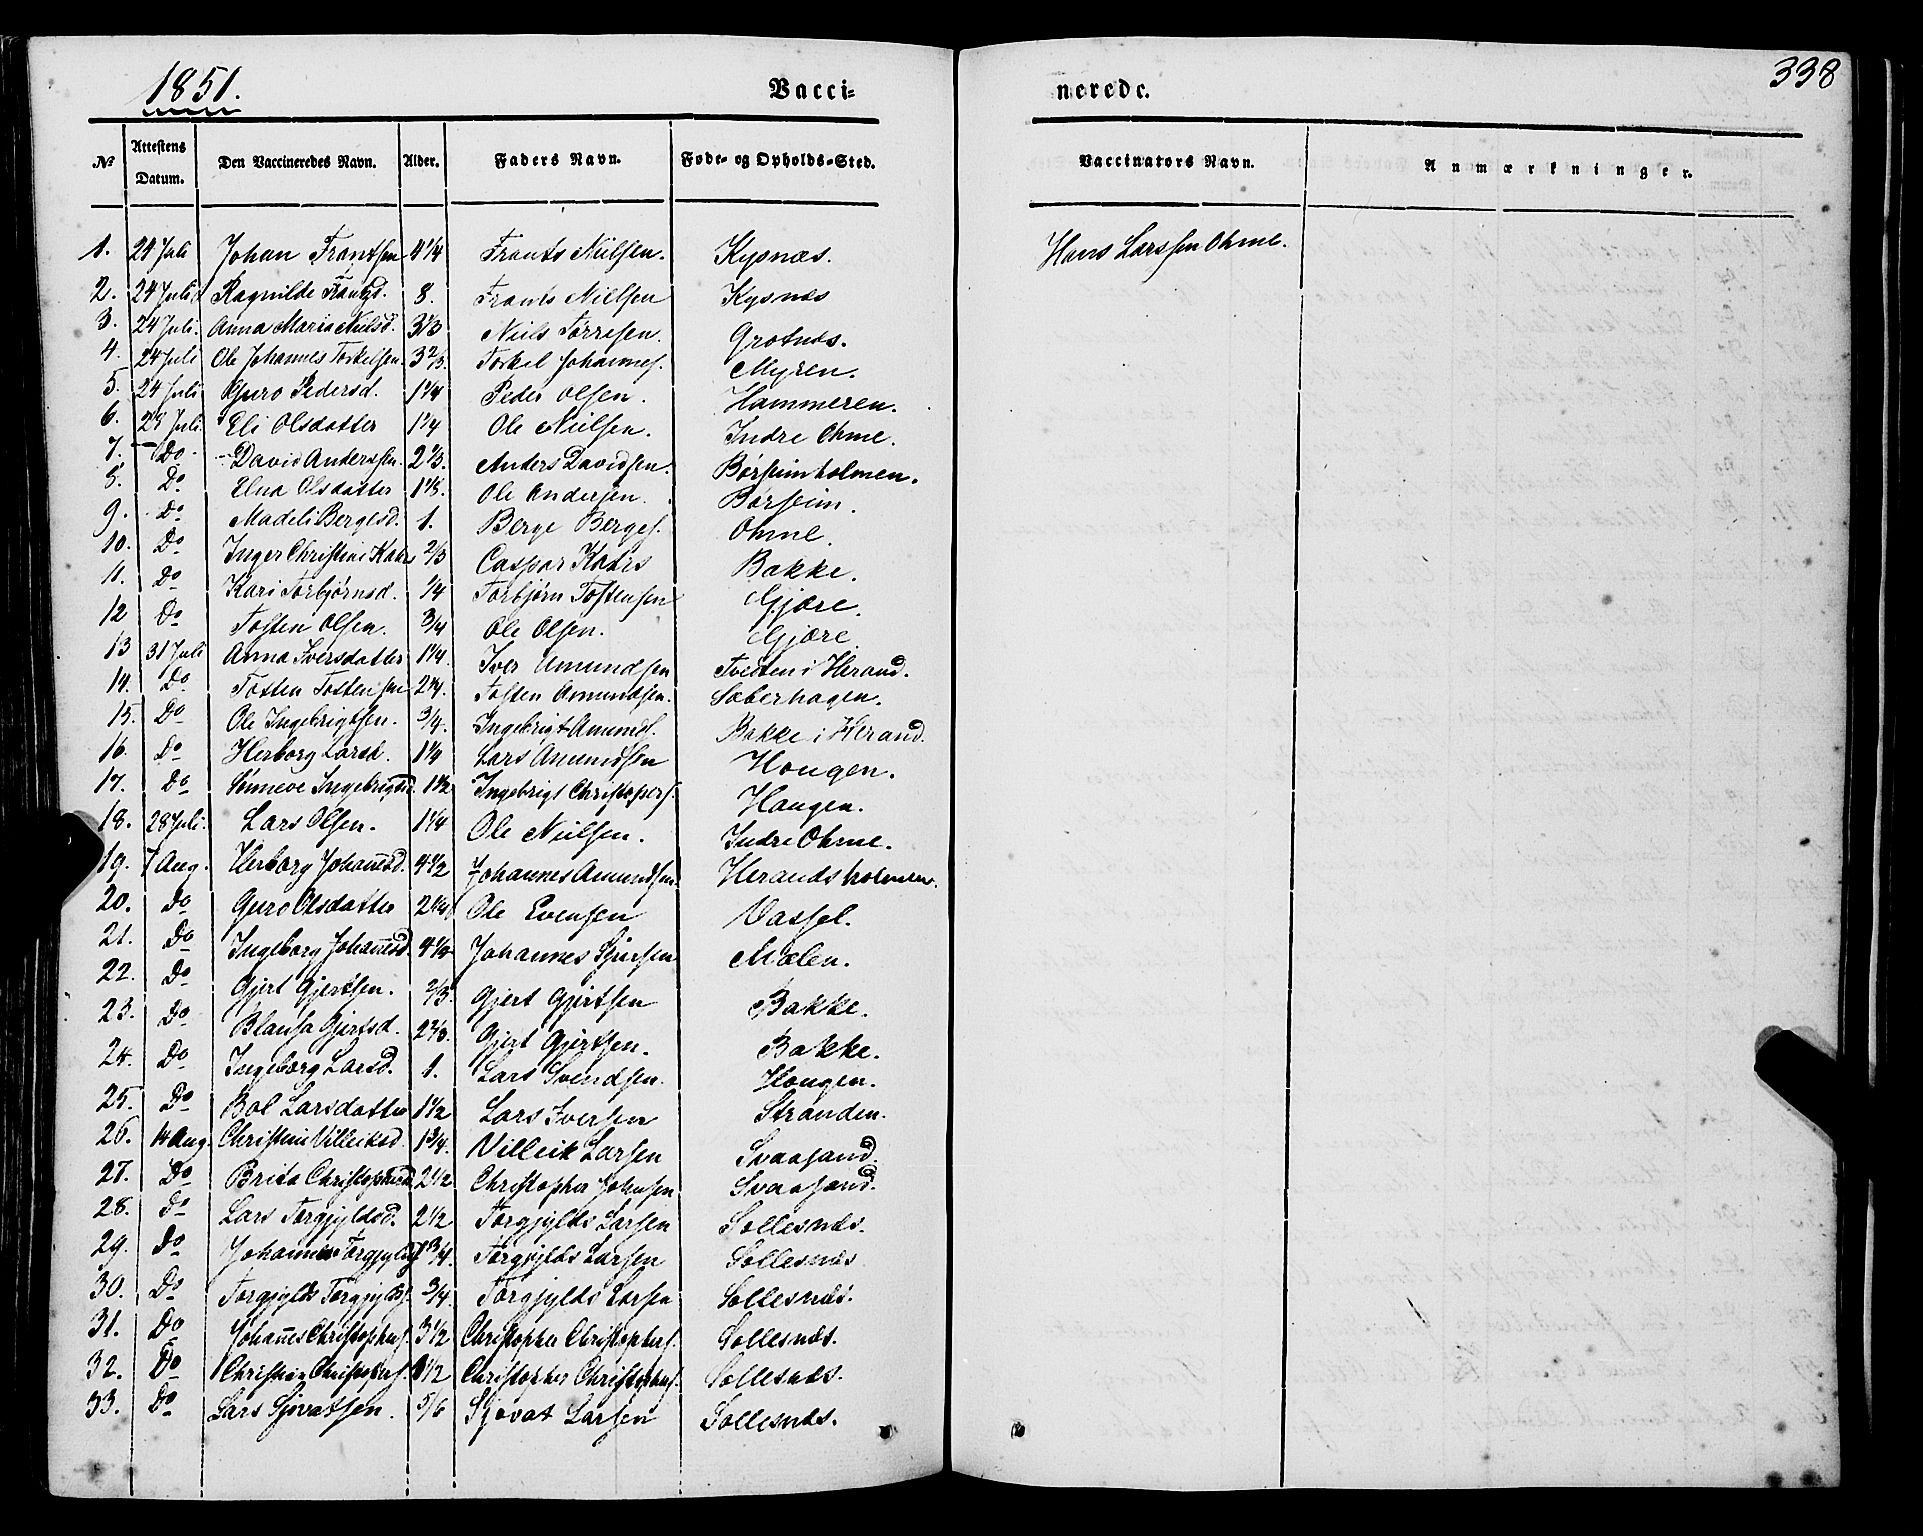 1851.
Vacci- nerede.
338
No Attestens Datum. Den Vaccineredes Navn. Alder. Faders Navn. Føde- og Opholds-Sted. Vaccinators Navn. Anmærkninger.
1. 24 Juli Johan Frantsen 4 1/4 Frants Nielsen. Kysnæs. Hans Larssen Ohme.
2. 24 Juli Ragnilde Frantsd. 8. Frants Nielsen Kysnæs
3. 24 Juli. Anna Maria Nielsd. 3 1/3 Niels Torresen. Grotnæs.
4. 24 Juli Ole Johannes Torkelsen 3 2/3. Torkel Johannes. Myren.
5. 24 Juli Guro Pedersd. 1 1/4 Peder Olsen. Hammeren.
6. 28 Juli. Eli Olsdatter 1 1/4 Ole Nielsen. Indre Ohme.
7. Do David Anderssen. 2 1/3. Anders Davidsen. Børsheimholmen.
8. Do Elna Olsdatter Ole Andersen. Børsheim.
9. Do Madeli Bergesd. 1. Berge Berges. Ohme.
10. Do Inger Christine Kahrs 2/3 Caspar Kahrs Bakke.
11. Do Kari Torbjørnsd. 1/4 Torbjørn Tostensen Gjære.
12 Do Tosten Olsen. 3/4 Ole Olsen. Gjære
13 31 Juli Anna Iversdatter 1 1/4. Iver Amundsen Tveiten i Herand.
14. Do Tosten Tostensen 2 1/4. Tosten Amundsen. Sæberhagen.
15. Do Ole Ingebrigtsen. 3/4. Ingebrigt Amunds. Bakke i Herand.
16. Do Herborg Larsd. 1 1/4 Lars Amundsen Hougen.
17. Do Sønneve Ingebrigtsd. 1 1/2 Ingebrigt Christophers. Haugen.
18. 28 Juli. Lars Olsen. 1 1/4 Ole Nielsen. Indre Ohme.
19. 7 Aug. Herborg Johannesd. 4 1/2 Johannes Amundsen. Herandsholmen.
20. Do Guro Olsdatter 2 1/4 Ole Evensen Vassel.
21. Do Ingeborg Johannesd. 4 1/4 Johannes Sjursen Mælen.
22. Do Gjert Gjertsen. 2/3. Gjert Gjertsen Bakke.
23. Do Blansa Gjertsd. 2 2/3. Gjert Gjertsen. Bakke.
24. Do Ingeborg Larsd. 1. Lars Svendsen. Hougen.
25. Do Bol Larsdatter 1 1/2 Lars Iversen Stranden.
26. 14 Aug. Christine Villeiksd. 1 3/4. Villeik Larsen Svaasand.
27. Do Brita Christophersd. 2 1/2 Christopher Johnsen Svaasand.
28. Do Lars Torgjyldsd. 2 1/2 Torgjylds Larsen Sollesnæs.
29. Do Johannes Torgjylds. 1 3/4. Torgjylds Larsen Sollesnæs
30. Do Torgjylds Torgjylds. 3/4. Torgjylds Larsen Sollesnæs.
31. Do Johannes Christophers. 3 1/2 Christopher Christophers. Sollesnæs.
32. Do Christian Christophers. 1/2 Christopher Christophers. Sollesnæs.
33. Do Lars Sjovatsen. 5/6 Sjovat Larsen Sollesnæs.